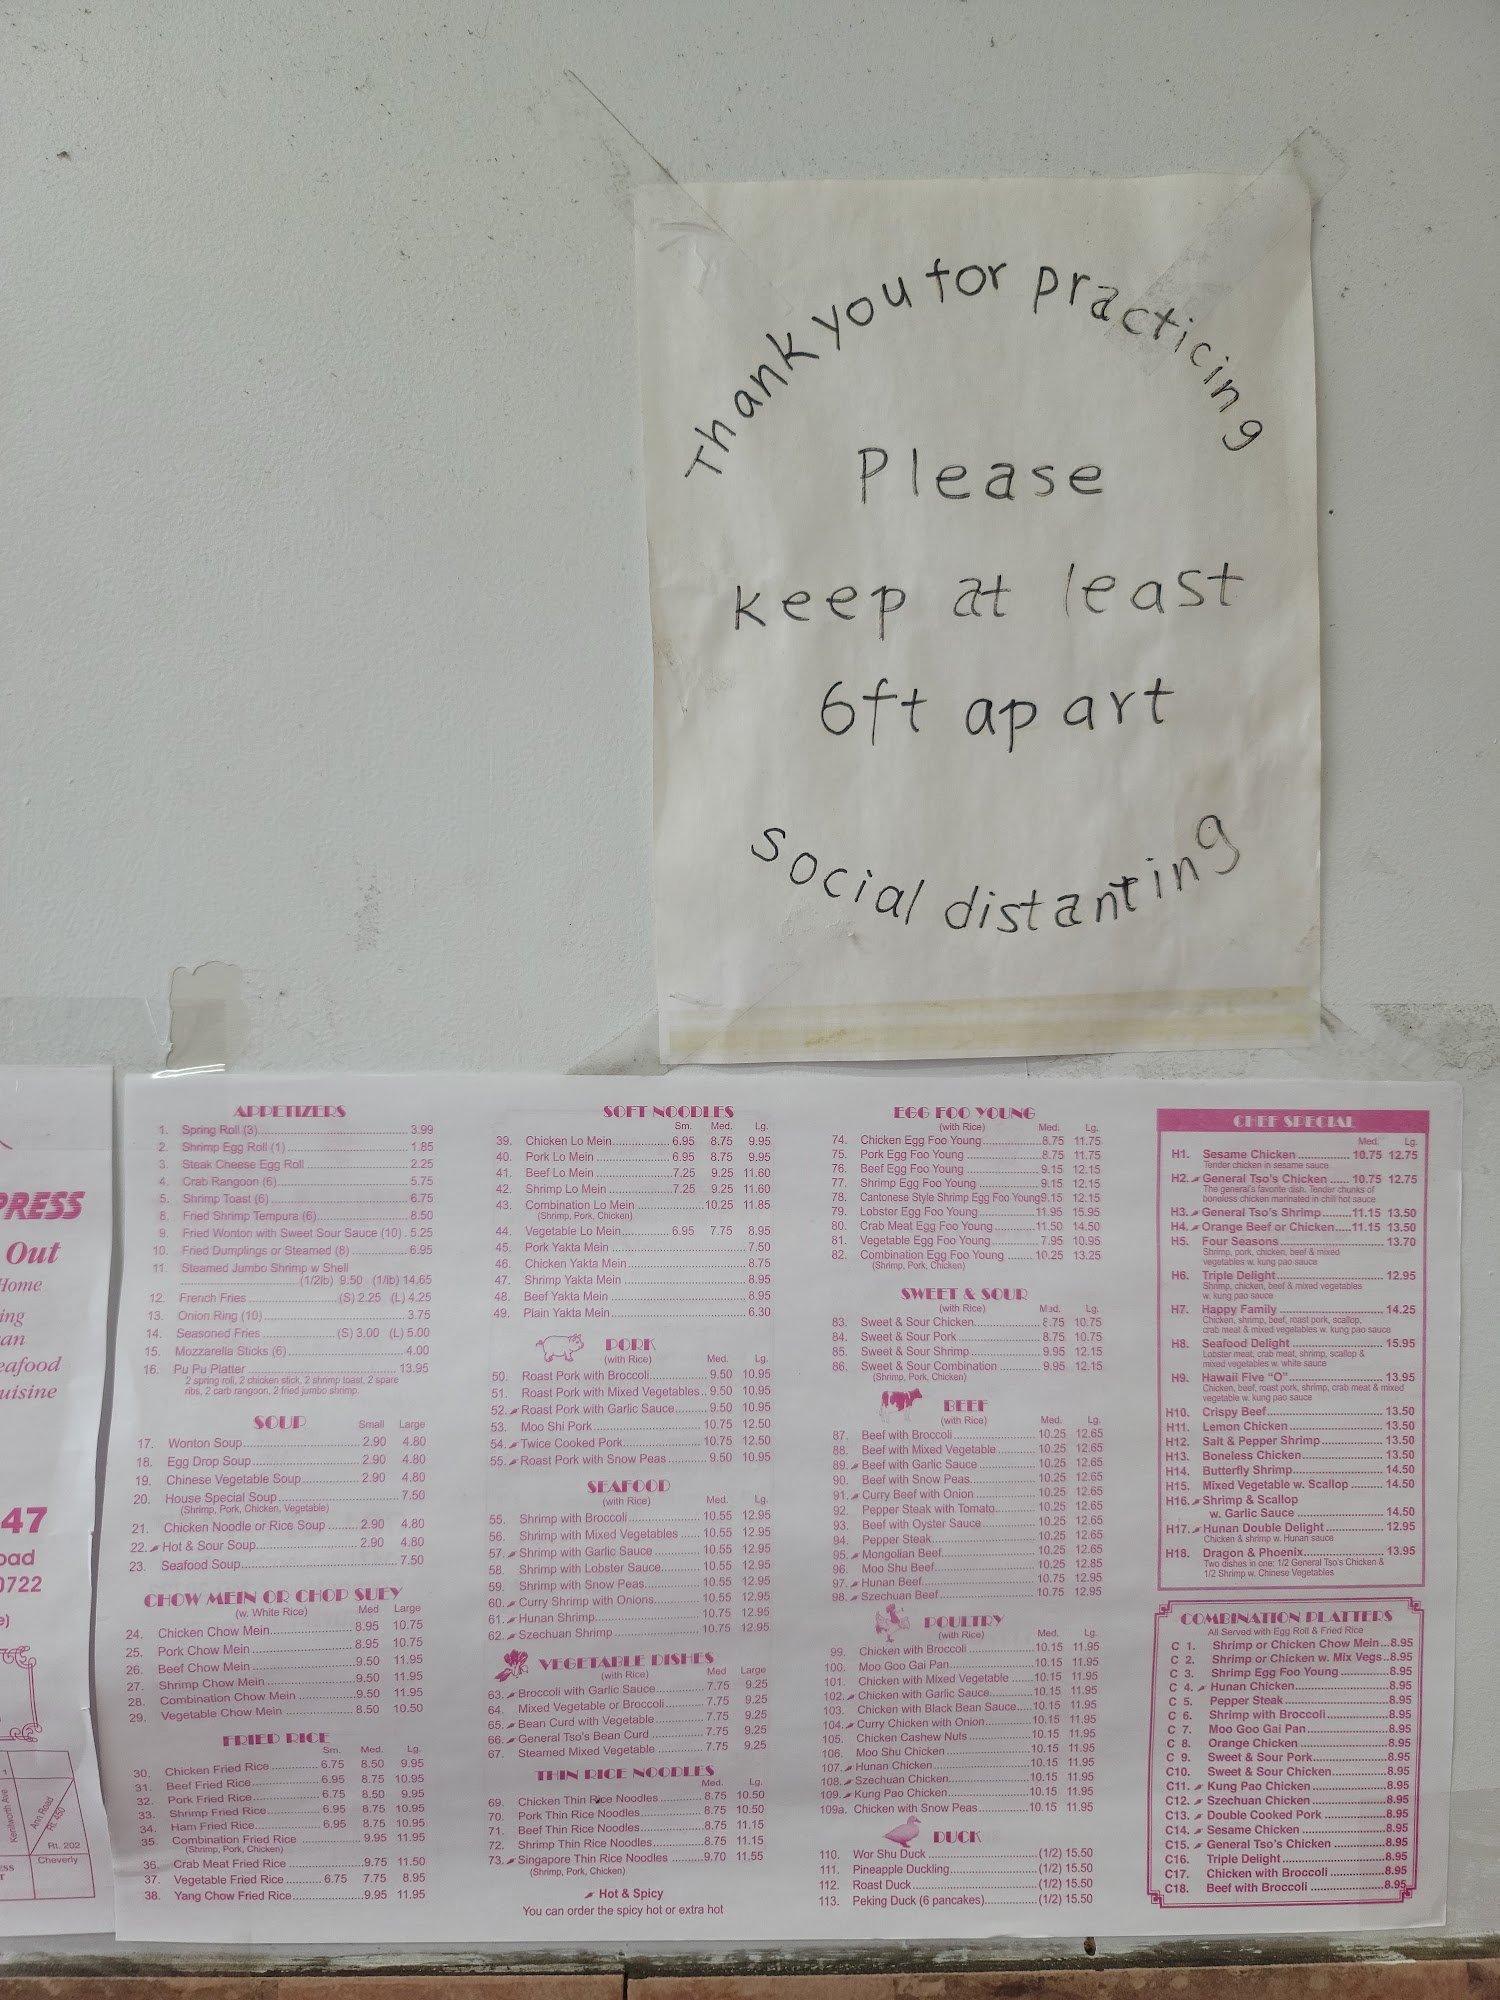 Thank you for practicing
Please
keep at least
6ft apart
social distanting
PRESS
Out
Home
47
0722
Kenilworth Ave
Ann Road
Rt. 450
Rt. 202
Cheverly
APPETIZERS
1. Spring Roll (3) 3.99
2. Shrimp Egg Roll (1) 1.85
3. Steak Cheese Egg Roll 2.25
4. Crab Rangoon (6) 5.75
5. Shrimp Toast (6) 6.75
8. Fried Shrimp Tempura (6) 8.50
9. Fried Wonton with Sweet Sour Sauce (10) 5.25
10. Fried Dumplings or Steamed (8) 6.95
11. Steamed Jumbo Shrimp w Shell
(1/2lb) 9.50 (1/lb) 14.65
12. French Fries (S) 2.25 (L) 4.25
13. Onion Ring (10) 3.75
14. Seasoned Fries (S) 3.00 (L) 5.00
15. Mozzarella Sticks (6) 4.00
16. Pu Pu Platter 13.95
2 spring roll, 2 chicken stick, 2 shrimp toast, 2 spare
ribs, 2 carb rangoon, 2 fried jumbo shrimp.
SOUP Small Large
17. Wonton Soup 2.90 4.80
18. Egg Drop Soup 2.90 4.80
19. Chinese Vegetable Soup 2.90 4.80
20. House Special Soup 7.50
(Shrimp, Pork, Chicken, Vegetable)
21. Chicken Noodle or Rice Soup 2.90 4.80
22. Hot & Sour Soup 2.90 4.80
23. Seafood Soup 7.50
CHOW MEIN OR CHOP SUEY
(w. White Rice) Med Large
24. Chicken Chow Mein 8.95 10.75
25. Pork Chow Mein 8.95 10.75
26. Beef Chow Mein 9.50 11.95
27. Shrimp Chow Mein 9.50 11.95
28. Combination Chow Mein 9.50 11.95
29. Vegetable Chow Mein 8.50 10.50
FRIED RICE
Sm. Med. Lg.
30. Chicken Fried Rice 6.75 8.50 9.95
31. Beef Fried Rice 6.95 8.75 10.95
32. Pork Fried Rice 6.75 8.50 9.95
33. Shrimp Fried Rice 6.95 8.75 10.95
34. Ham Fried Rice 6.95 8.75 10.95
35. Combination Fried Rice 9.95 11.95
(Shrimp, Pork, Chicken)
36. Crab Meat Fried Rice 9.75 11.50
37. Vegetable Fried Rice 6.75 7.75 8.95
38. Yang Chow Fried Rice 9.95 11.95
SOFT NOODLES
Sm. Med. Lg.
39. Chicken Lo Mein 6.95 8.75 9.95
40. Pork Lo Mein 6.95 8.75 9.95
41. Beef Lo Mein 7.25 9.25 11.60
42. Shrimp Lo Mein 7.25 9.25 11.60
43. Combination Lo Mein 10.25 11.85
(Shrimp, Pork, Chicken)
44. Vegetable Lo Mein 6.95 7.75 8.95
45. Pork Yakta Mein 7.50
46. Chicken Yakta Mein 8.75
47. Shrimp Yakta Mein 8.95
48. Beef Yakta Mein 8.95
49. Plain Yakta Mein 6.30
PORK
(with Rice) Med. Lg.
50. Roast Pork with Broccoli 9.50 10.95
51. Roast Pork with Mixed Vegetables 9.50 10.95
52. Roast Pork with Garlic Sauce 9.50 10.95
53. Moo Shi Pork 10.75 12.50
54. Twice Cooked Pork 10.75 12.50
55. Roast Pork with Snow Peas 9.50 10.95
SEAFOOD
(with Rice) Med. Lg.
55. Shrimp with Broccoli 10.55 12.95
56. Shrimp with Mixed Vegetables 10.55 12.95
57. Shrimp with Garlic Sauce 10.55 12.95
58. Shrimp with Lobster Sauce 10.55 12.95
59. Shrimp with Snow Peas 10.55 12.95
60. Curry Shrimp with Onions 10.55 12.95
61. Hunan Shrimp 10.75 12.95
62. Szechuan Shrimp 10.75 12.95
VEGETABLE DISHES
(with Rice) Med Large
63. Broccoli with Garlic Sauce 7.75 9.25
64. Mixed Vegetable or Broccoli 7.75 9.25
65. Bean Curd with Vegetable 7.75 9.25
66. General Tso's Bean Curd 7.75 9.25
67. Steamed Mixed Vegetable 7.75 9.25
THIN RICE NOODLES
Med. Lg.
69. Chicken Thin Rice Noodles 8.75 10.50
70. Pork Thin Rice Noodles 8.75 10.50
71. Beef Thin Rice Noodles 8.75 11.15
72. Shrimp Thin Rice Noodles 8.75 11.15
73. Singapore Thin Rice Noodles 9.70 11.55
(Shrimp, Pork, Chicken)
Hot & Spicy
You can order the spicy hot or extra hot
EGG FOO YOUNG
(with Rice) Med. Lg.
74. Chicken Egg Foo Young 8.75 11.75
75. Pork Egg Foo Young 8.75 11.75
76. Beef Egg Foo Young 9.15 12.15
77. Shrimp Egg Foo Young 9.15 12.15
78. Cantonese Style Shrimp Egg Foo Young 9.15 12.15
79. Lobster Egg Foo Young 11.95 15.95
80. Crab Meat Egg Foo Young 11.50 14.50
81. Vegetable Egg Foo Young 7.95 10.95
82. Combination Egg Foo Young 10.25 13.25
(Shrimp, Pork, Chicken)
SWEET & SOUR
(with Rice) Med. Lg.
83. Sweet & Sour Chicken 8.75 10.75
84. Sweet & Sour Pork 8.75 10.75
85. Sweet & Sour Shrimp 9.95 12.15
86. Sweet & Sour Combination 9.95 12.15
(Shrimp, Pork, Chicken)
BEEF
(with Rice) Med. Lg.
87. Beef with Broccoli 10.25 12.65
88. Beef with Mixed Vegetable 10.25 12.65
89. Beef with Garlic Sauce 10.25 12.65
90. Beef with Snow Peas 10.25 12.65
91. Curry Beef with Onion 10.25 12.65
92. Pepper Steak with Tomato 10.25 12.65
93. Beef with Oyster Sauce 10.25 12.65
94. Pepper Steak 10.25 12.65
95. Mongolian Beef 10.25 12.65
96. Moo Shu Beef 10.25 12.85
97. Hunan Beef 10.75 12.95
98. Szechuan Beef 10.75 12.95
POULTRY
(with Rice) Med. Lg.
99. Chicken with Broccoli 10.15 11.95
100. Moo Goo Gai Pan 10.15 11.95
101. Chicken with Mixed Vegetable 10.15 11.95
102. Chicken with Garlic Sauce 10.15 11.95
103. Chicken with Black Bean Sauce 10.15 11.95
104. Curry Chicken with Onion 10.15 11.95
105. Chicken Cashew Nuts 10.15 11.95
106. Moo Shu Chicken 10.15 11.95
107. Hunan Chicken 10.15 11.95
108. Szechuan Chicken 10.15 11.95
109. Kung Pao Chicken 10.15 11.95
109a. Chicken with Snow Peas 10.15 11.95
DUCK
110. Wor Shu Duck (1/2) 15.50
111. Pineapple Duckling (1/2) 15.50
112. Roast Duck (1/2) 15.50
113. Peking Duck (6 pancakes) (1/2) 15.50
CHEF SPECIAL
Med. Lg.
H1. Sesame Chicken 10.75 12.75
Tender chicken in sesame sauce
H2. General Tso's Chicken 10.75 12.75
The general's favorite dish. Tender chunks of
boneless chicken marinated in chili hot sauce
H3. General Tso's Shrimp 11.15 13.50
H4. Orange Beef or Chicken 11.15 13.50
H5. Four Seasons 13.70
Shrimp, pork, chicken, beef & mixed
vegetables w. kung pao sauce
H6. Triple Delight 12.95
Shrimp, chicken, beef & mixed vegetables
w. kung pao sauce
H7. Happy Family 14.25
Chicken, shrimp, beef, roast pork, scallop,
crab meat & mixed vegetables w. kung pao sauce
H8. Seafood Delight 15.95
Lobster meat, crab meat, shrimp, scallop &
mixed vegetables w. white sauce
H9. Hawaii Five "O" 13.95
Chicken, beef, roast pork, shrimp, crab meat & mixed
vegetable w. kung pao sauce
H10. Crispy Beef 13.50
H11. Lemon Chicken 13.50
H12. Salt & Pepper Shrimp 13.50
H13. Boneless Chicken 13.50
H14. Butterfly Shrimp 14.50
H15. Mixed Vegetable w. Scallop 14.50
H16. Shrimp & Scallop
w. Garlic Sauce 14.50
H17. Hunan Double Delight 12.95
Chicken & shrimp w. Hunan sauce
H18. Dragon & Phoenix 13.95
Two dishes in one: 1/2 General Tso's Chicken &
1/2 Shrimp w. Chinese Vegetables
COMBINATION PLATTERS
All Served with Egg Roll & Fried Rice
C 1. Shrimp or Chicken Chow Mein 8.95
C 2. Shrimp or Chicken w. Mix Vegs 8.95
C 3. Shrimp Egg Foo Young 8.95
C 4. Hunan Chicken 8.95
C 5. Pepper Steak 8.95
C 6. Shrimp with Broccoli 8.95
C 7. Moo Goo Gai Pan 8.95
C 8. Orange Chicken 8.95
C 9. Sweet & Sour Pork 8.95
C10. Sweet & Sour Chicken 8.95
C11. Kung Pao Chicken 8.95
C12. Szechuan Chicken 8.95
C13. Double Cooked Pork 8.95
C14. Sesame Chicken 8.95
C15. General Tso's Chicken 8.95
C16. Triple Delight 8.95
C17. Chicken with Broccoli 8.95
C18. Beef with Broccoli 8.95